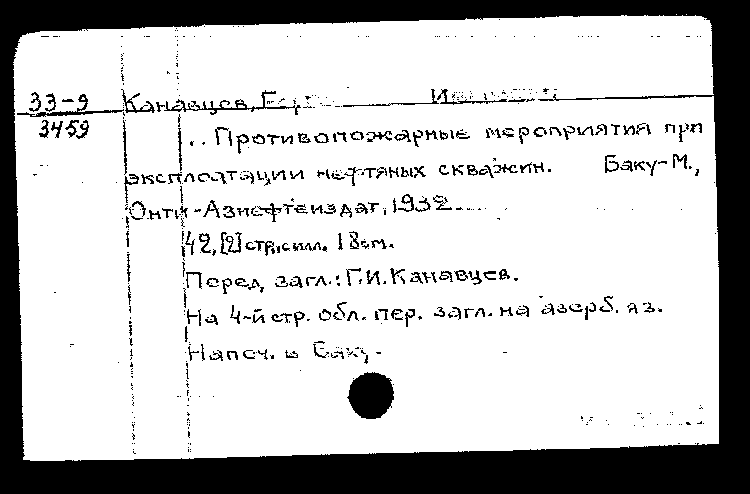 33-9 Канавцев,
3459
.. Противопожарные мероприятия при
эксплоатации нефтяных скважин. Баку-М.,
Онти-Азнефтеиздат, 1932
42, [2] стр. с илл. 18 см.
Перед загл.: Г.И. Канавцев.
На 4-й стр. обл. пер. загл. на азерб. яз.
Напеч. в Баку.